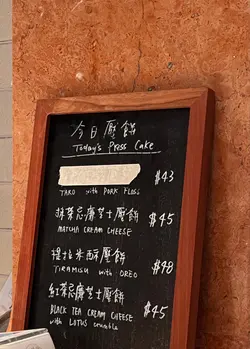 今日壓餅
Today's Press Cake
$43
TARO with PORK FLOSS
抹茶忌廉芝士壓餅 $45
MATCHA CREAM CHEESE
提拉米酥壓餅 $48
TIRAMISU with OREO
紅茶忌廉芝士壓餅
BLACK TEA CREAM CHEESE $45
with LOTUS crumble